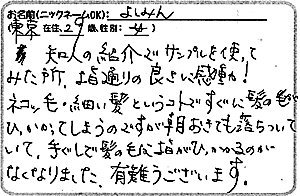 お名前(ニックネームOK): よしみん
東京 在住、29歳、性別: 女
知人の紹介でサンプルを使って
みた所、指通りの良さに感動!
ネコッ毛・細い髪というコトですぐに髪の毛が
ひっかかってしまうのですが朝おきても落ちついて
いて、手ぐしで髪の毛に指がひっかかるのが
なくなりました。有難うございます。